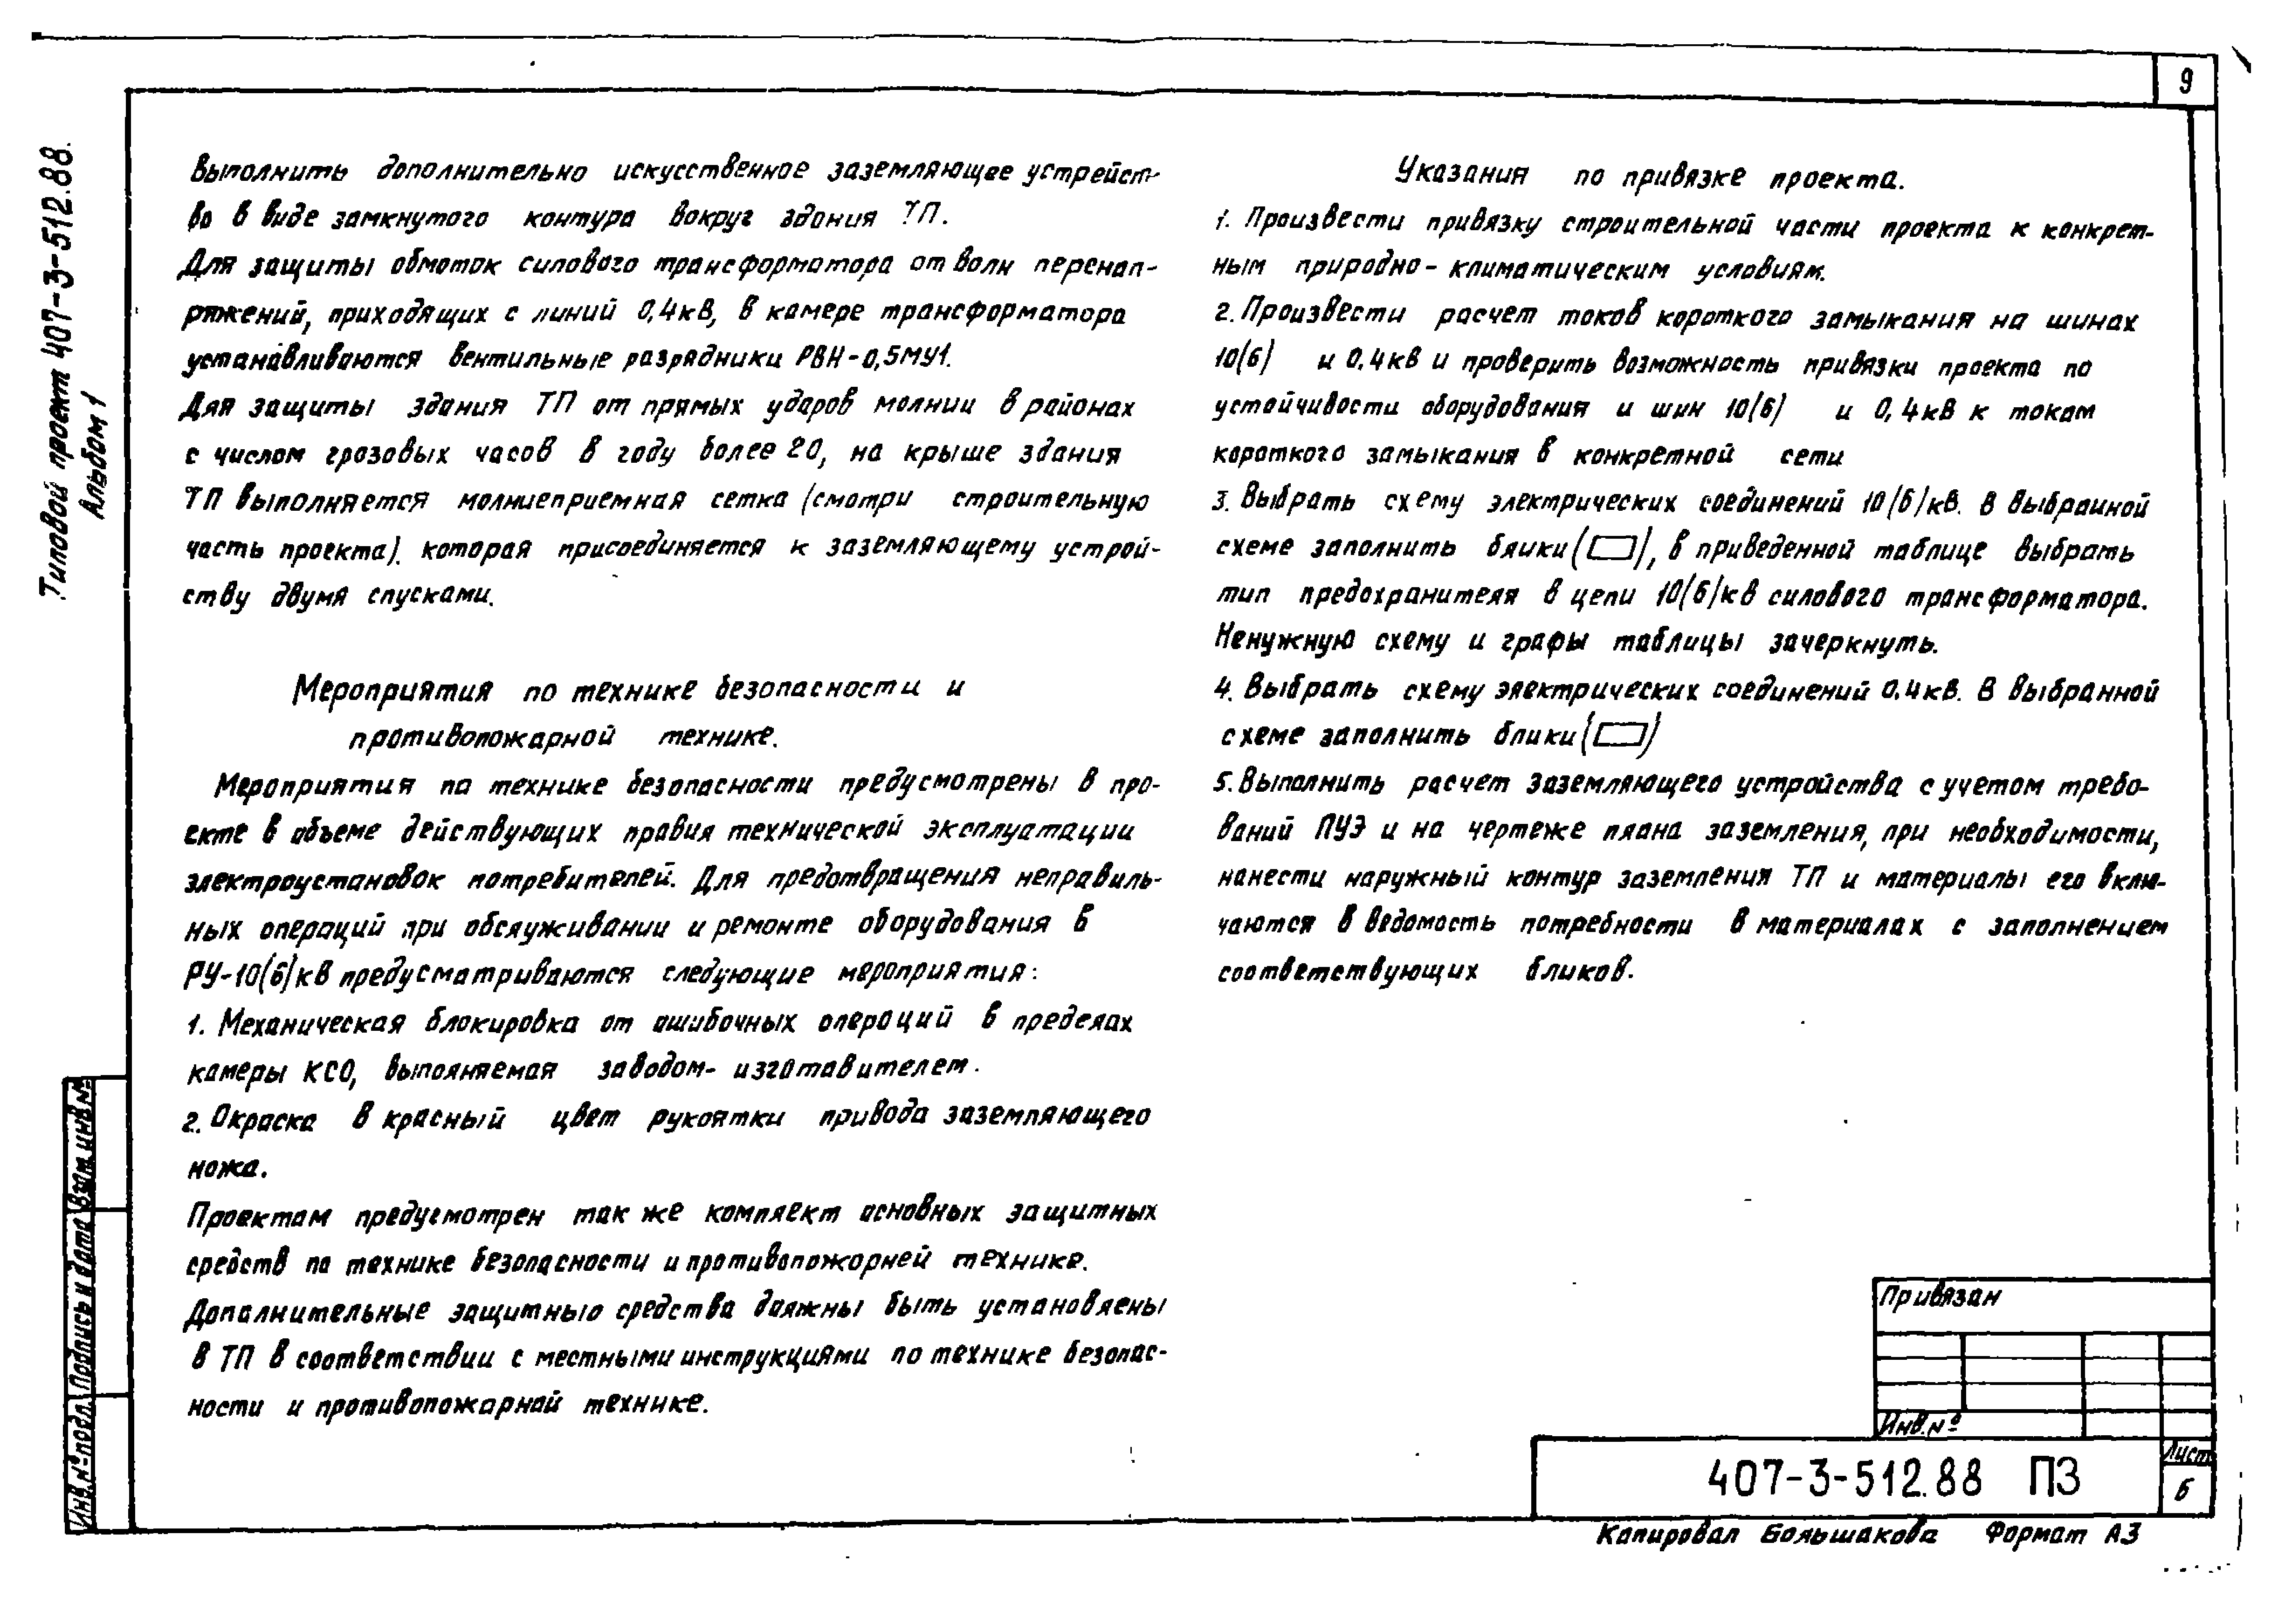 9
Типовой проект 407-3-512.88.
Альбом 1
Выполнить дополнительно искусственное заземляющее устрейст-
во в виде замкнутого контура вокруг здания ТП.
Для защиты обмоток силового трансформатора от волн перенап-
ряжений, приходящих с линий 0,4кВ, в камере трансформатора
устанавливаются вентильные разрядники РВН-0,5МУ1.
Для защиты здания ТП от прямых ударов молнии в районах
с числом грозовых часов в году более 20, на крыше здания
ТП выполняется молниеприемная сетка (смотри строительную
часть проекта). которая присоединяется к заземляющему устрой-
ству двумя спусками.
Мероприятия по технике безопасности и
противопожарной технике.
Мероприятия по технике безопасности предусмотрены в про-
екте в объеме действующих правил технической эксплуатации
электроустановок потребителей. Для предотвращения неправиль-
ных операций при обслуживании и ремонте оборудования в
РУ-10(6)кВ предусматриваются следующие мероприятия:
1. Механическая блокировка от ошибочных операций в пределах
камеры КСО, выполняемая заводом- изготавителем.
2. Окраска в красный цвет рукоятки привода заземляющего
ножа.
Проектам предусмотрен так же комплект основных защитных
средств по технике безопасности и противопожорней технике.
Дополнительные защитныю средства должны быть установлены
в ТП в соответствии с местными инструкциями по технике безопас-
ности и противопожарной технике.
Указания по привязке проекта.
1. Произвести привязку строительной части проекта к конкрет-
ным природно-климатическим условиям.
2. Произвести расчет токов короткого замыкания на шинах
10(6) и 0,4кВ и проверить возможность привязки проекта по
устойчивости оборудования и шин 10(6) и 0,4кВ к токам
короткого замыкания в конкретной сети
3. Выбрать схему электрических соединений 10(6)кВ. В выбранной
схеме заполнить блики(▭), в приведенной таблице выбрать
тип предохранителя в цепи 10(6)кВ силового трансформатора.
Ненужную схему и графы таблицы зачеркнуть.
4. Выбрать схему электрических соединений 0.4кВ. В выбранной
схеме заполнить блики(▭)
5. Выполнить расчет заземляющего устройства с учетом требо-
ваний ПУЭ и на чертеже плана заземления, при необходимости,
нанести наружный контур заземления ТП и материалы его вклю-
чаются в ведомость потребности в материалах с заполнением
соответствующих бликов.
Взам.инв.№
Подпись и дата
Инв.№подл.
Привязан
Инв.№
407-3-512.88 ПЗ
Лист
6
Копировал Большакова Формат А3